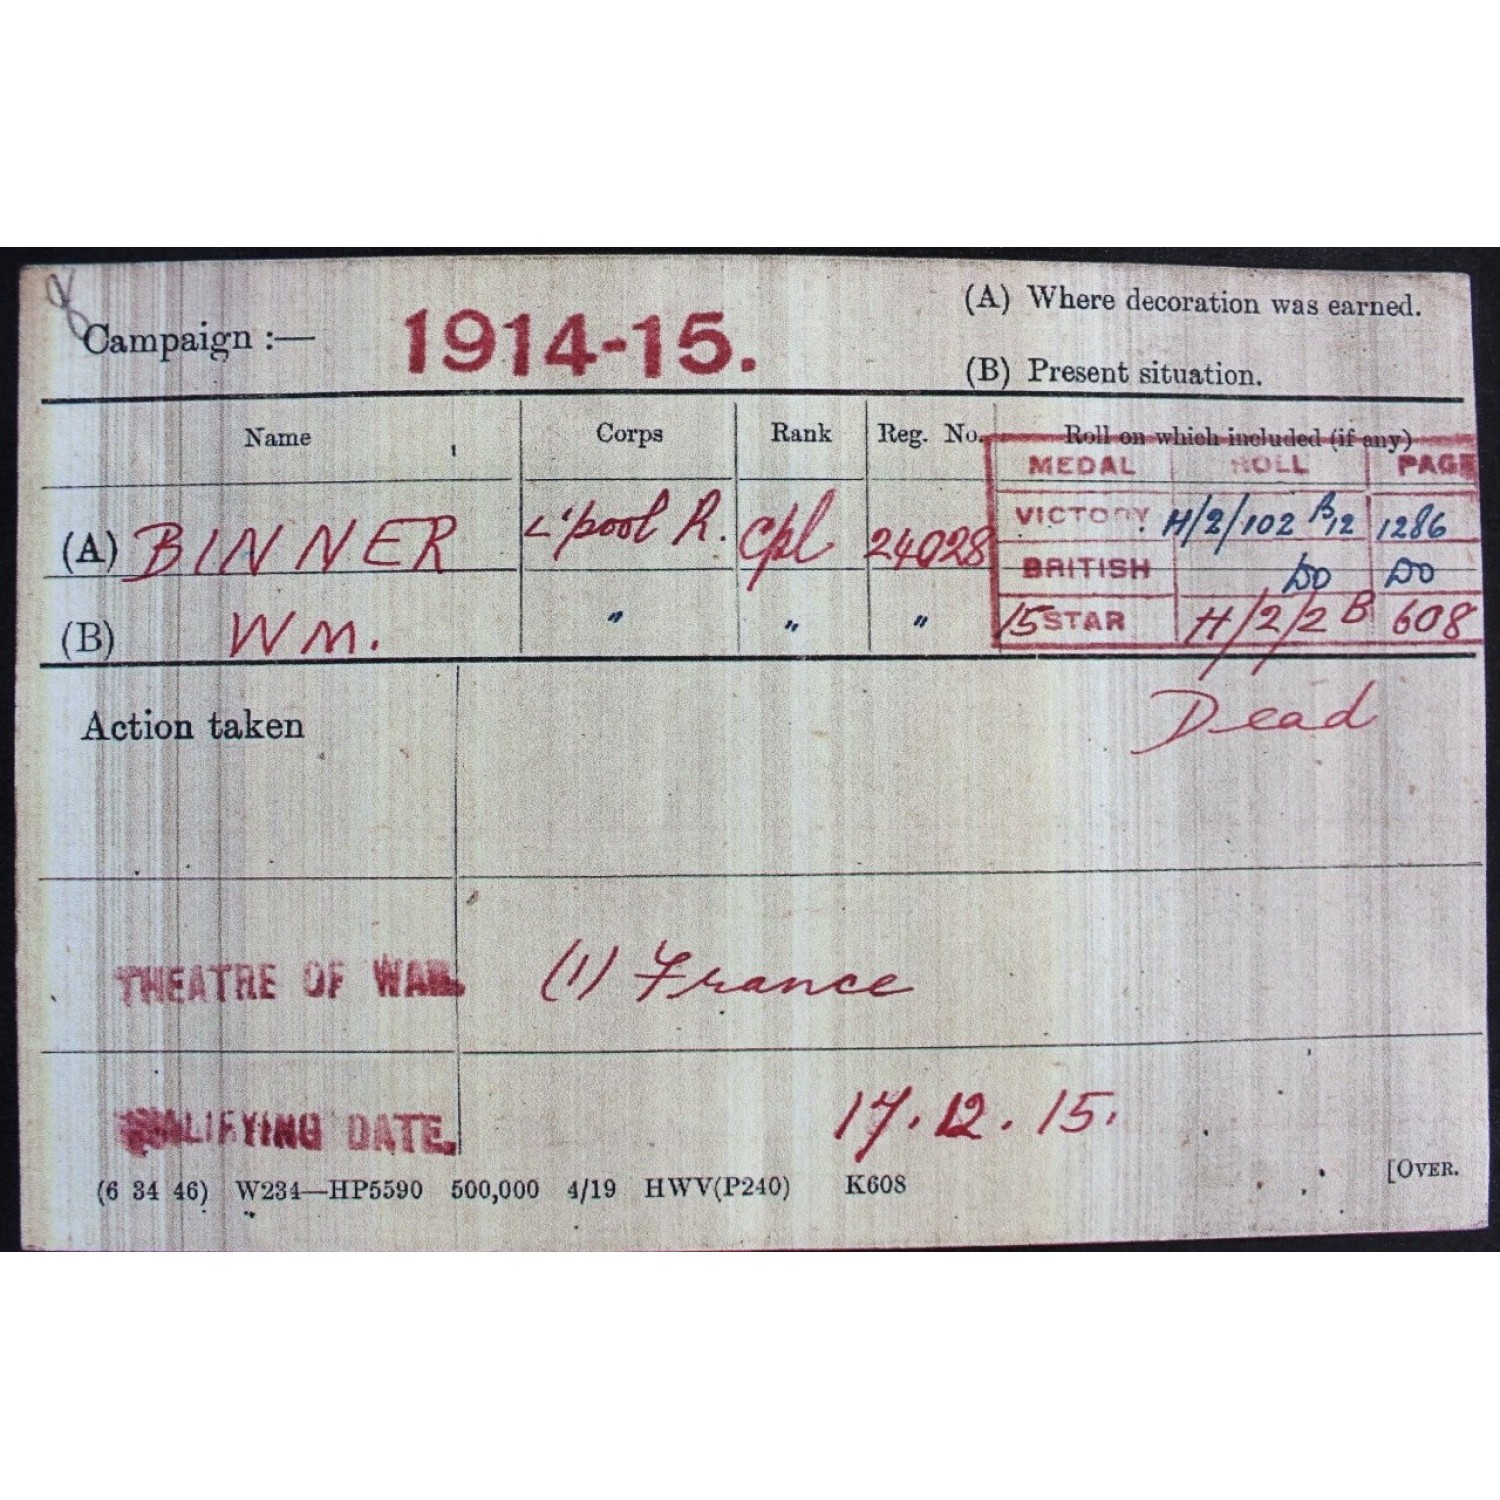 Campaign :— 1914-15.
(A) Where decoration was earned.
(B) Present situation.
Name Corps Rank Reg. No. Roll on which included (if any)
MEDAL ROLL PAGE
(A) BINNER L'pool R. Cpl 24028 VICTORY H/2/102 B12 1286
BRITISH DO DO
(B) Wm. " " " 15 STAR H/2/2 B 608
Action taken Dead
THEATRE OF WAR. (1) France
QUALIFYING DATE. 17.12.15.
(6 34 46) W234—HP5590 500,000 4/19 HWV(P240) K608 [OVER.